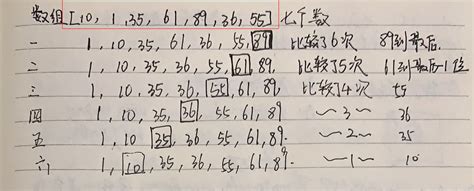 数组[10, 1, 35, 61, 89, 36, 55] 七个数
一 1, 10, 35, 61, 36, 55, 89 比较了6次 89到最后.
二 1, 10, 35, 36, 55, 61, 89. 比较了5次 61到最后-1位
三 1, 10, 35, 36, 55, 61, 89 比较了4次 55
四 1, 10, 35, 36, 55, 61, 89 ~3~ 36
五 1, 10, 35, 36, 55, 61, 89. ~2~ 35
六 1, 10, 35, 36, 55, 61, 89. ~1~ 10